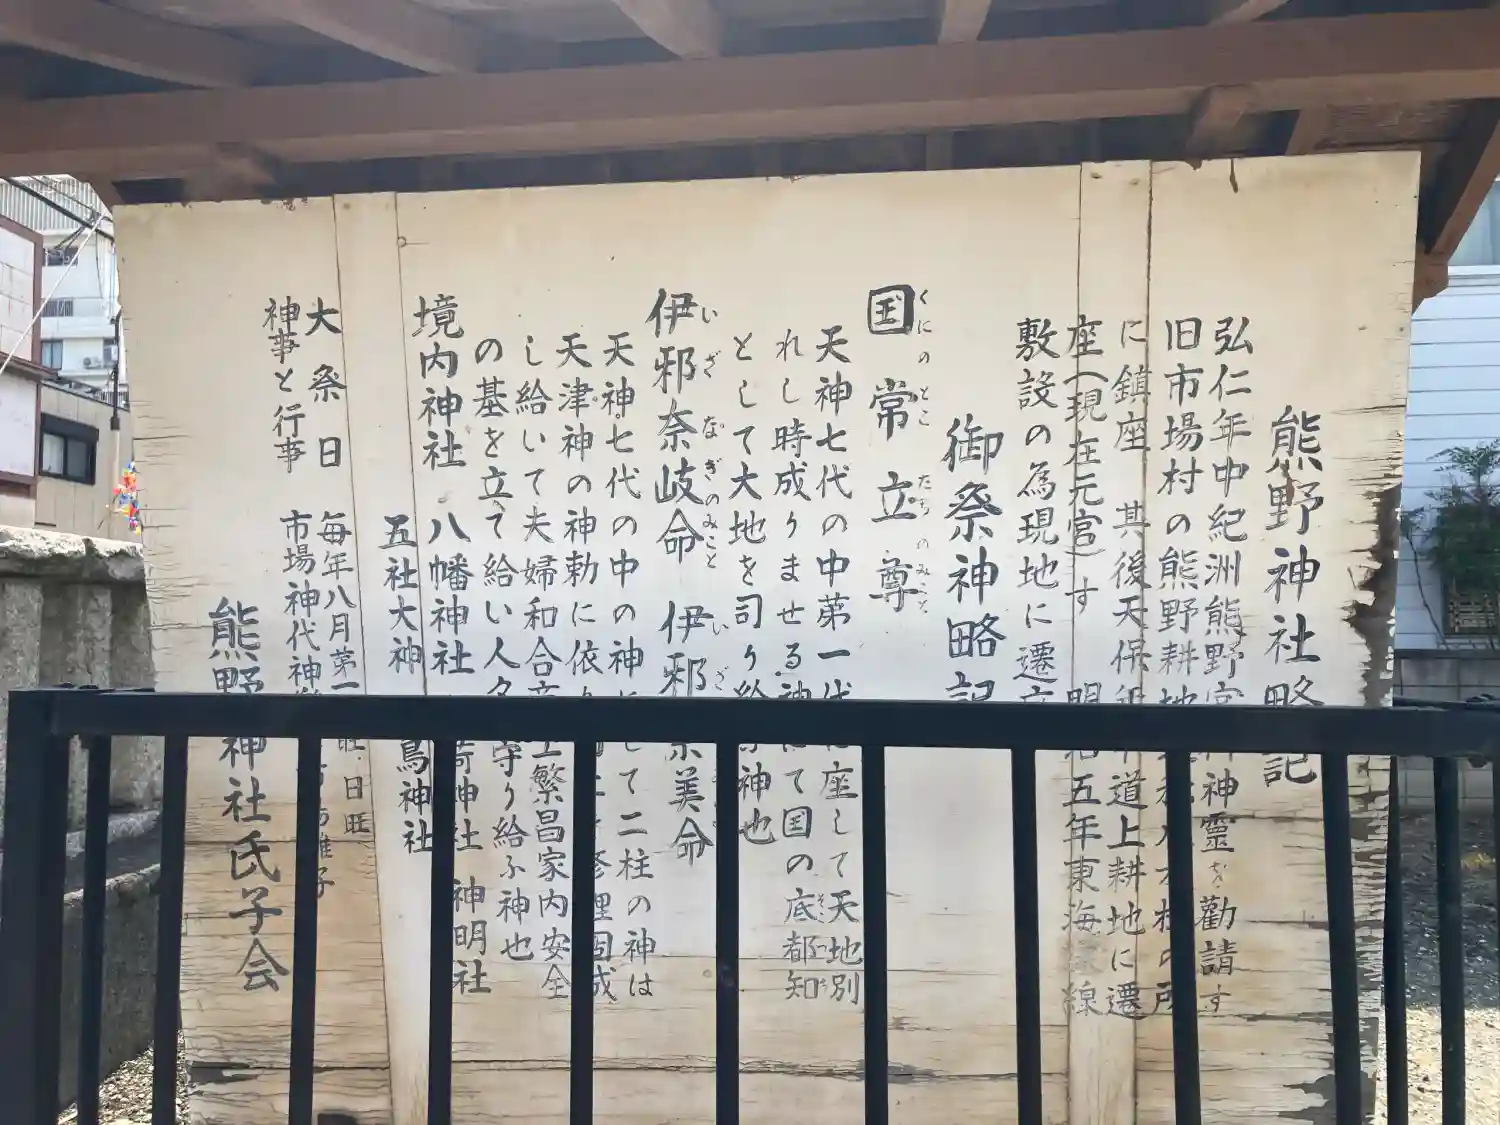 熊野神社略記
弘仁年中紀洲熊野宮 神靈を勸請す
旧市場村の熊野耕地 村の所
に鎮座 其後天保 道上耕地に遷
座(現在元宮)す 明治五年東海 線
敷設の為現地に遷座
御祭神略記
国常立尊
くにのとこたちのみこと
天神七代の中第一代 座して天地別
れし時成りませる神 にて国の底都知
そこつち
として大地を司り給 神也
伊邪奈岐命 伊邪奈美命
いざなぎのみこと いざ
天神七代の中の神 して二柱の神は
天津神の神勅に依 修理固成
し給いて夫婦和合 繁昌家内安全
の基を立て給い人々 守り給ふ神也
境内神社 八幡神社 神社 神明社
五社大神 神社
大祭日 毎年八月第一 日旺
神事と行事 市場神代神 子
熊野神社氏子会